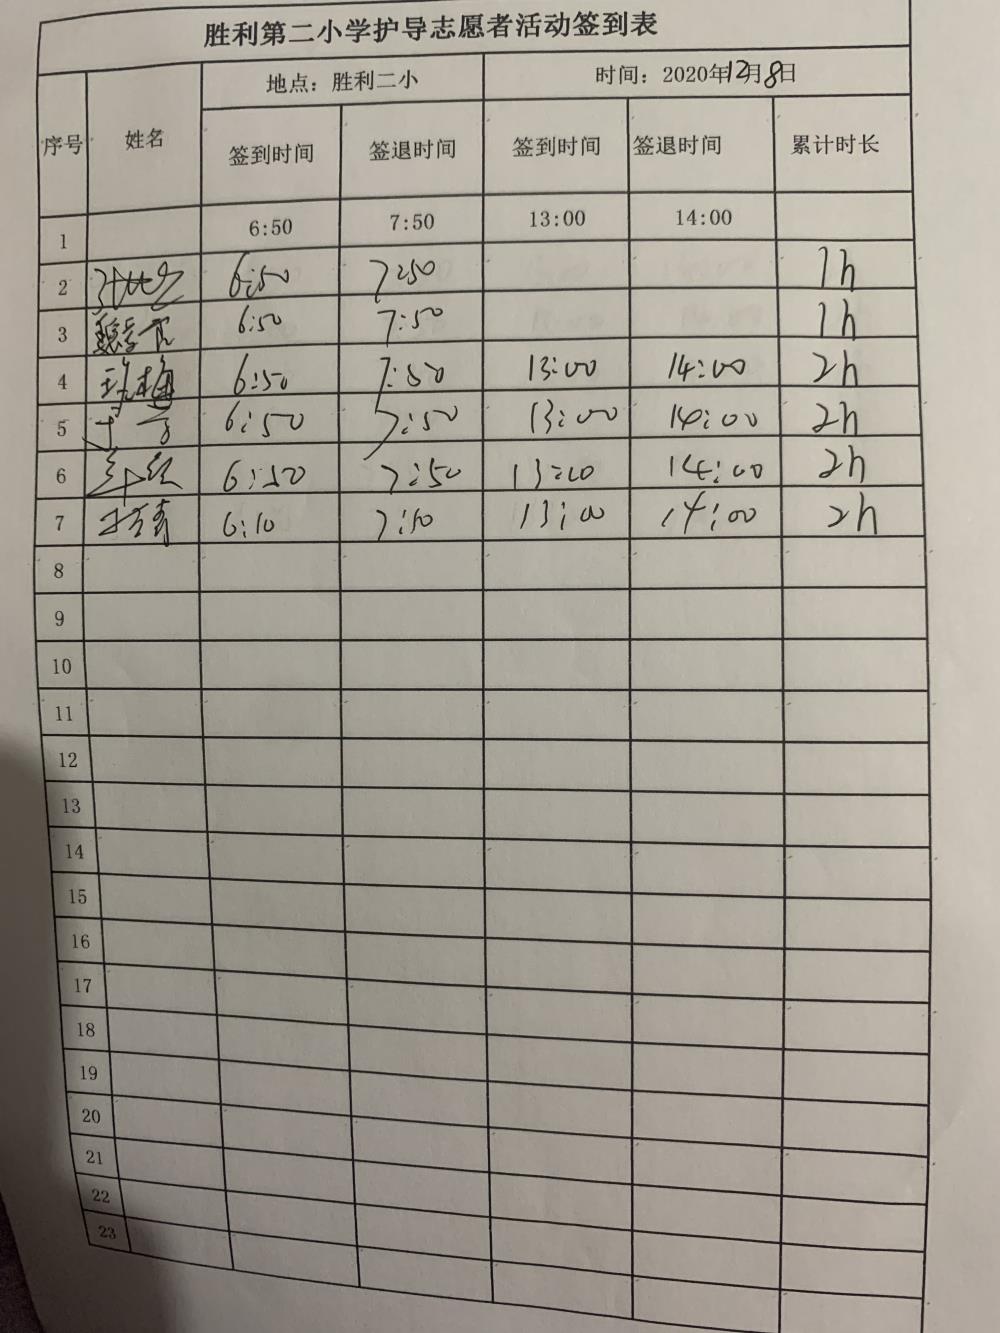 胜利第二小学护导志愿者活动签到表
地点：胜利二小 时间：2020年12月8日
序号 姓名 签到时间 签退时间 签到时间 签退时间 累计时长
1 6:50 7:50 13:00 14:00
2 6:50 7:50 1h
3 6:50 7:50 1h
4 6:50 7:50 13:00 14:00 2h
5 6:50 7:50 13:00 14:00 2h
6 6:50 7:50 13:00 14:00 2h
7 6:10 7:10 13:00 14:00 2h
8
9
10
11
12
13
14
15
16
17
18
19
20
21
22
23